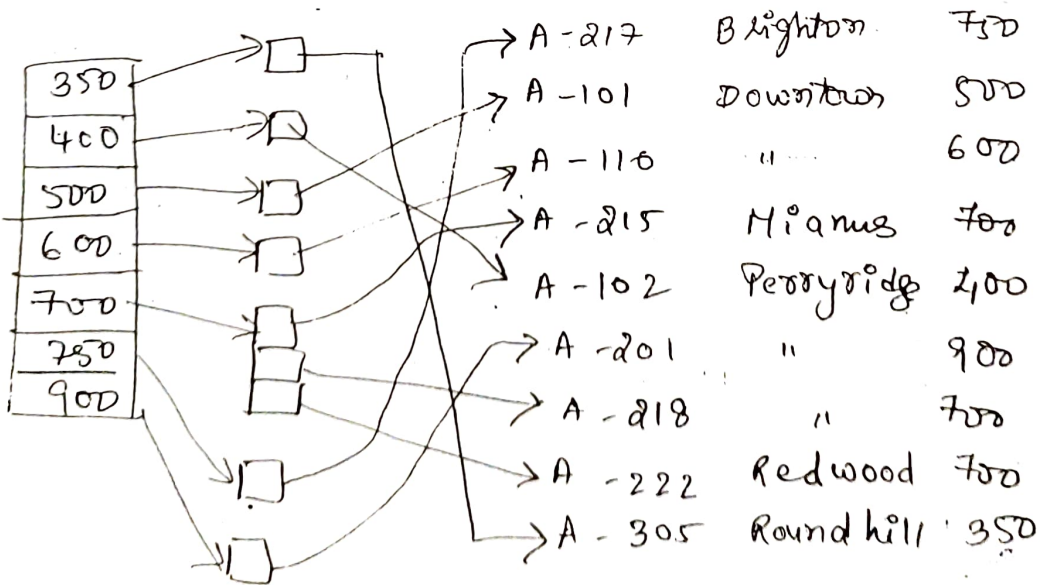 350
400
500
600
700
750
900
A-217 Brighton 750
A-101 Downtown 500
A-110 " 600
A-215 Mianus 700
A-102 Perryridge 400
A-201 " 900
A-218 " 700
A-222 Redwood 700
A-305 Round hill 350